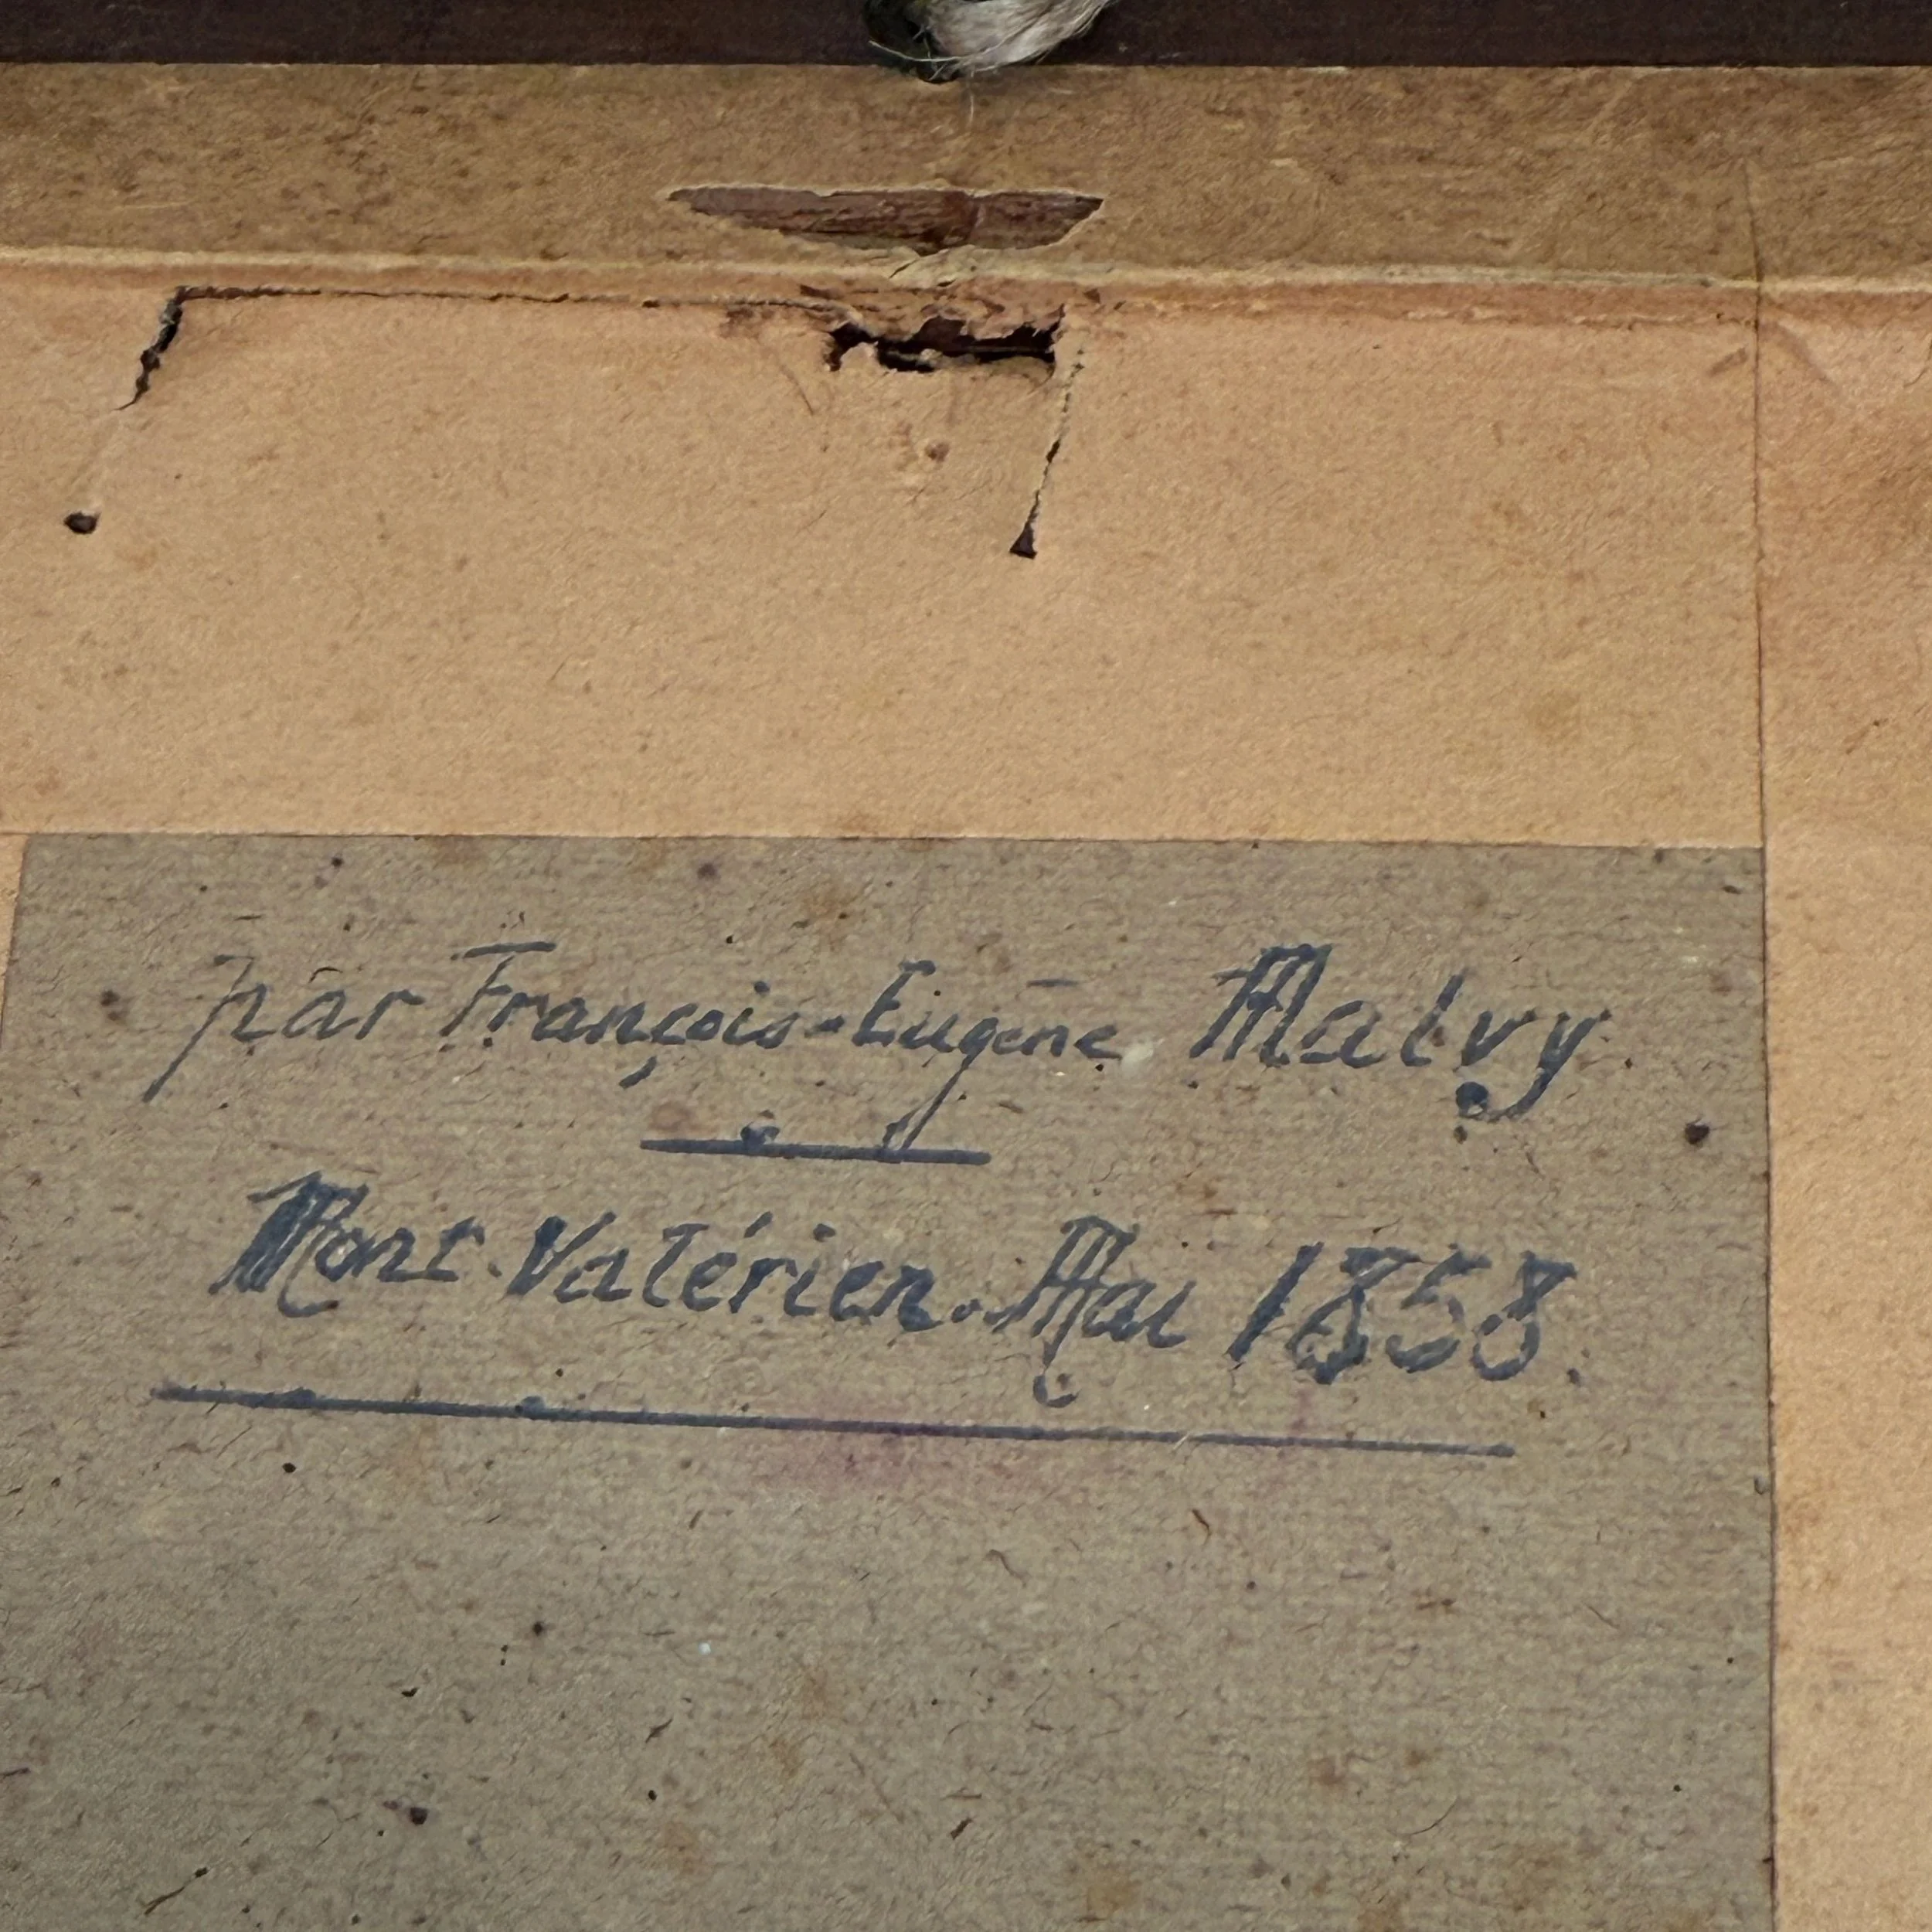 par François-Eugène Malvy.
Mont-Valérien. Mai 1858.